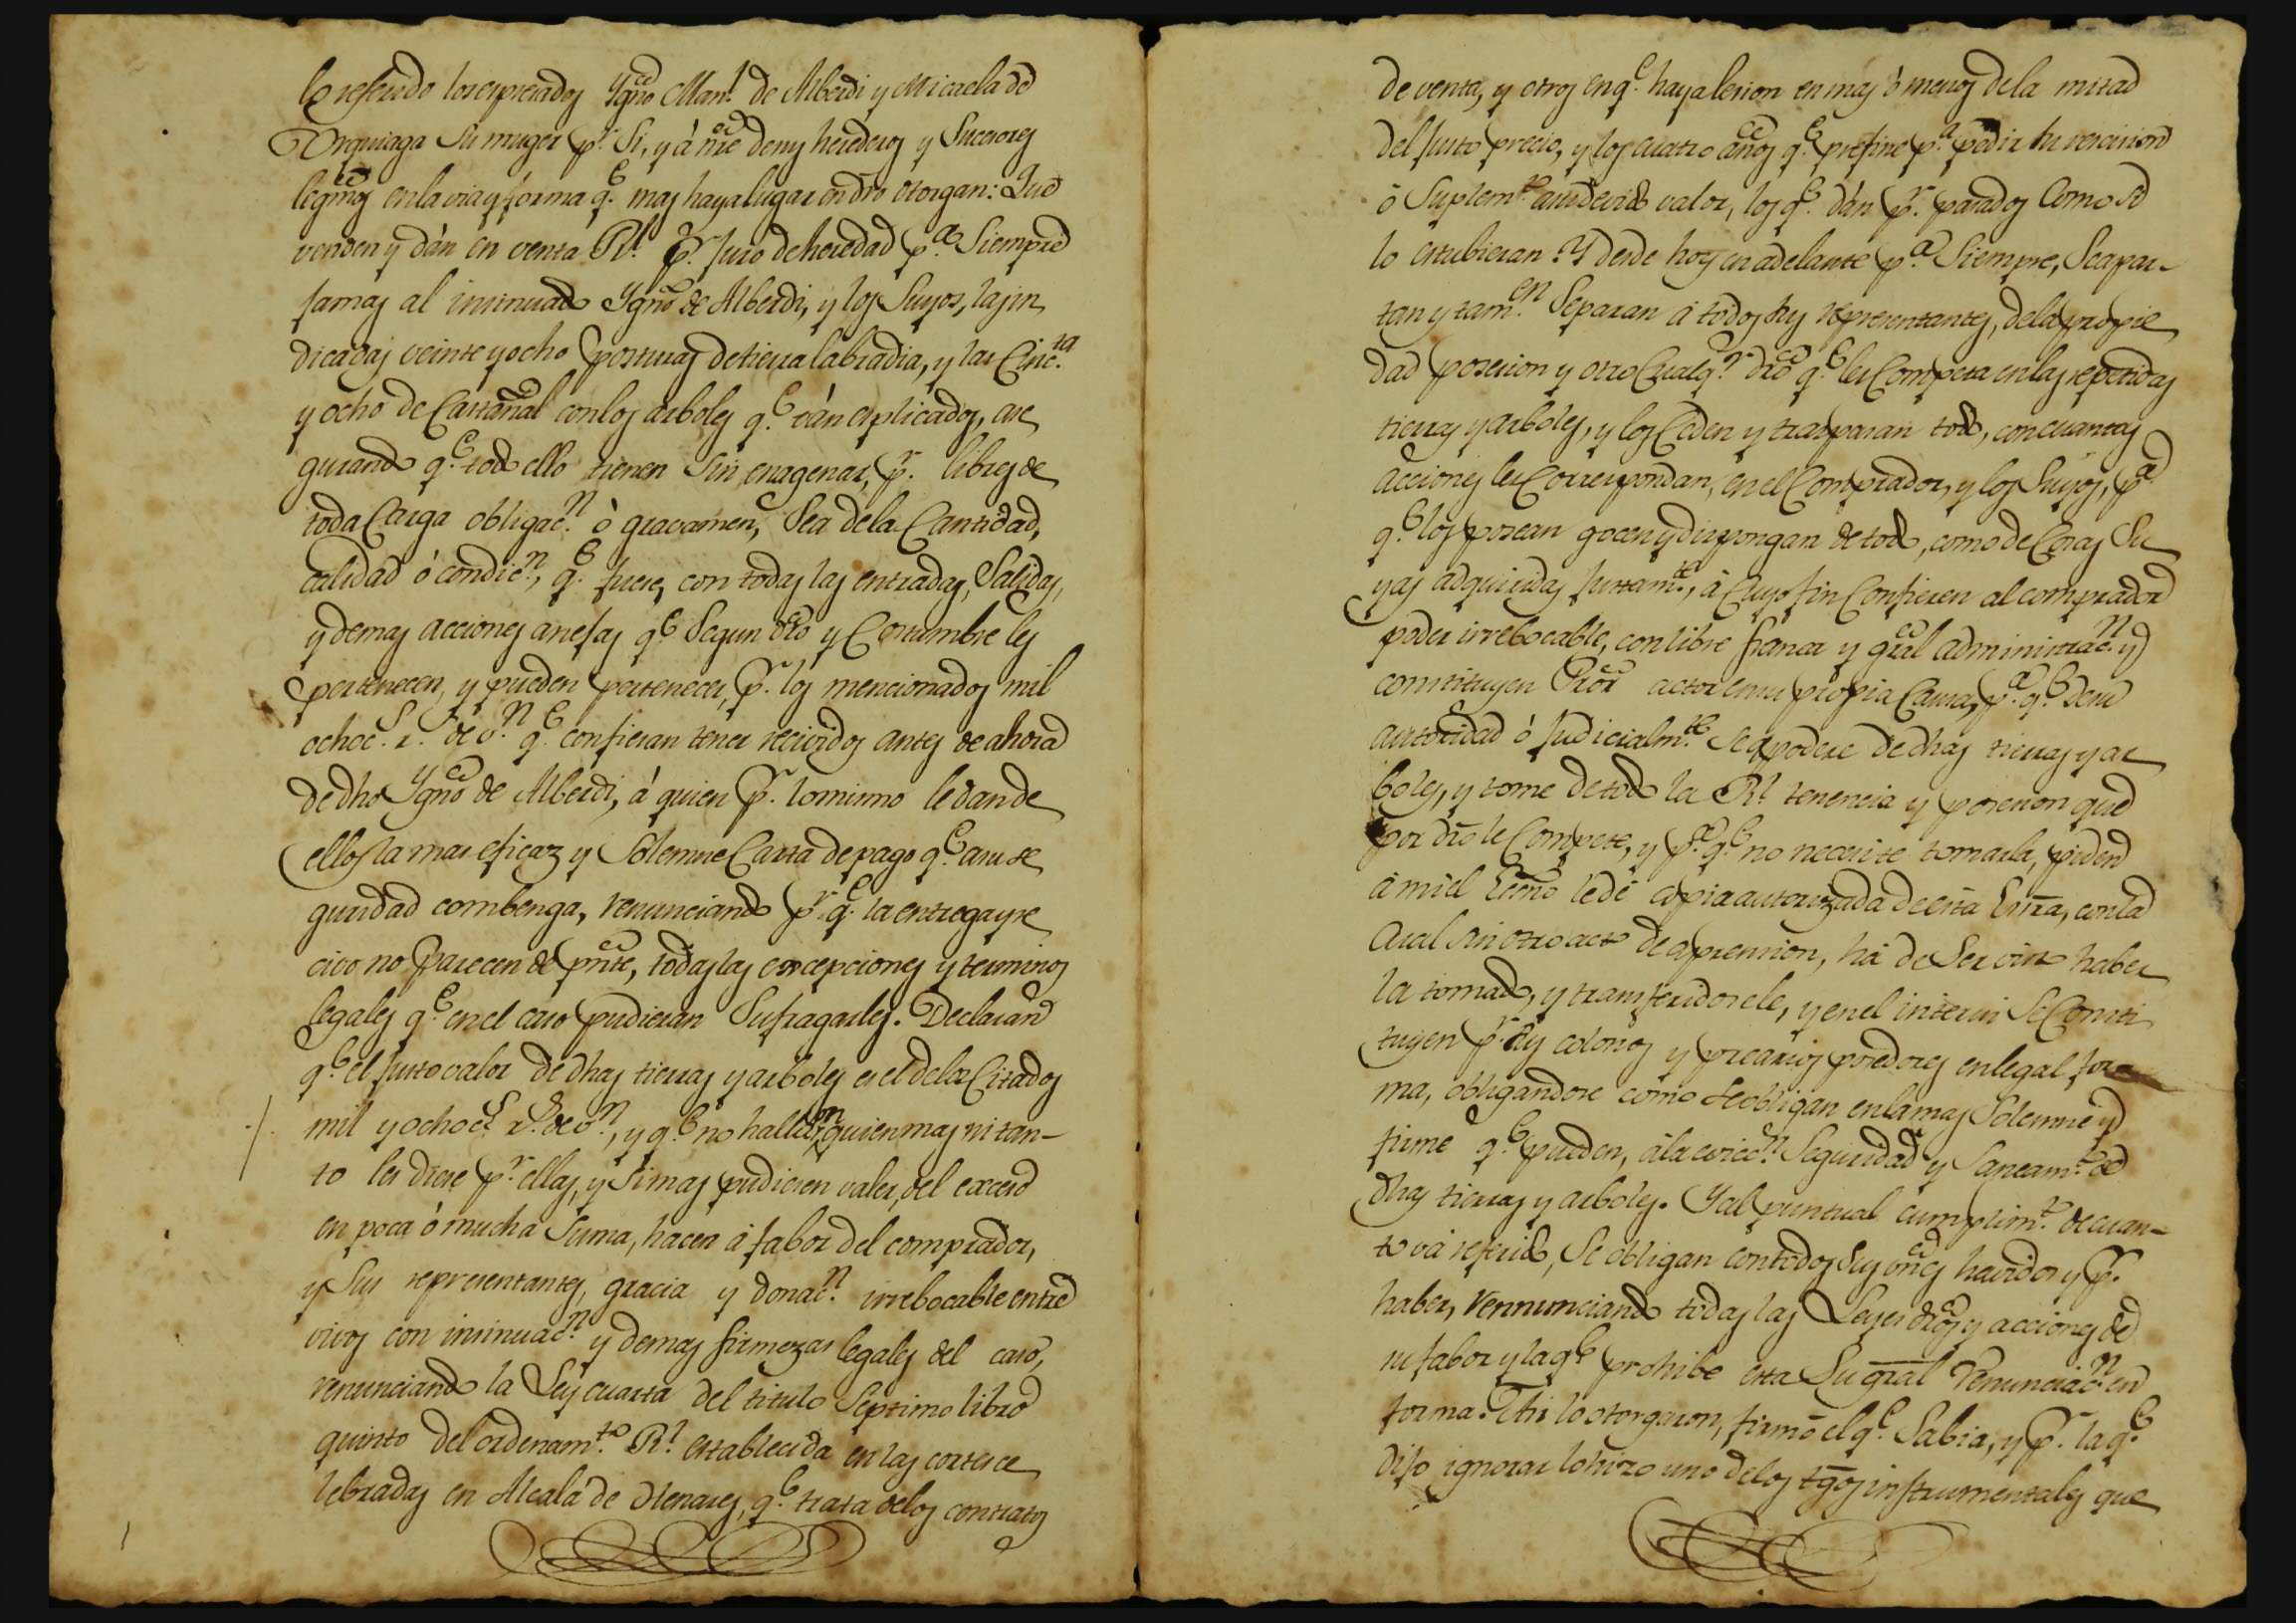 lo referido los expresados Ygno Man.l de Alberdi y Micaela de
Orquiaga su muger p.r Si, y á nre de ny herederos y Sucesores
legmos en la via y forma q.e mas haya lugar en dro otorgan: Que
venden y dán en venta Rl. p.r Juro de heredad p.a Siempre
jamas al insinuado Ygno de Alberdi, y los Suyos, las in
dicadas veinte y ocho posturas de tierra labradia, y las Cinc.ta
y ocho de Castañal con los arboles q.e ván explicados, ase
gurando q.e todo ello tienen sin enagenar, p.r libres de
toda Carga obligac.n ò gravamen, Sea de la Cantidad,
calidad ó condic.n, q.e fuere, con todas las entradas, Salidas,
y demas acciones anejas q.e Segun dro y Costumbre les
pertenecen, y pueden pertenecer, p.r los mencionados mil
ochoc.s r.s de v.n q.e confiesan tener recividos antes de ahora
de dho Ygno de Alberdi, á quien p.r lo mismo le dan de
ellos la mas eficaz y Solemne Carta de pago q.e a su se
guridad combenga, renunciando p.r q.e la entrega y re
civo no parecen de pnte, todas las excepciones y terminos
legales q.e en el caso pudieran Sufragarles. Declaran
q.e el Justo valor de dhas tierras y arboles es el de los Citados
mil y ochoc.s r.s de v.n, y q.e no hallaron quien mas ni tan-
to les diese p.r ellas, y Si mas pudiesen valer, del exceso
en poca ó mucha Suma, hacen á fabor del comprador,
y Sus representantes, gracia y donac.n irrebocable entre
vivos con insinuac.n y demas firmezas legales del caso,
renunciando la Ley cuarta del titulo Septimo libro
quinto del ordenam.to Rl. establecida en las cortes ce
lebradas en Alcalá de Henares, q.e trata de los contratos
de venta, y otros en q.e haya lesion en mas ò menos de la mitad
del Justo precio, y los cuatro años q.e prefine p.a pedir su rescision
ò Suplem.to a su devido valor, los q.e dán p.r pasados Como si
lo estubieran: Y desde hoy en adelante p.a Siempre, Se apar-
tan y tam.en Separan á todos sus representantes, de la propie
dad posesion y otro Cualq.r dro q.e les Competa en las repetidas
tierras y arboles, y los Ceden y traspasan todo, con cuantas
acciones les Correspondan, en el Comprador, y los Suyos, p.a
q.e los posean gocen y dispongan de todo, como de Cosas Su
yas adquiridas Justam.te, á Cuyo fin Confieren al comprador
poder irrebocable, con libre franca y gral administrac.n y
constituyen Pror actor en su propia Causa, p.a q.e de su
autoridad ó Judicialm.te Se apodere de dhas tierras y ar
boles, y tome de todo la Rl. tenencia y posesion que
por dro le Compete, y p.a q.e no necesite tomarla, piden
á mi el Essno le dé copia autorizada de esta Essra, con la
cual sin otro acto de aprension, ha de Ser visto haber
la tomado, y transferidosele, y en el interin Se Consti
tuyen p.r sus colonos y precarios poseedores en legal for
ma, obligandose como Se obligan en la mas Solemne y
firme q.e pueden, á la evicc.n Seguridad y Saneam.to de
dhas tierras y arboles. Y al puntual cumplim.to de cuan-
to vá referido, Se obligan con todos Sus bnes havidos y p.r
haber, rennunciando todas las Leyes dros y acciones de
su fabor y la q.e prohibe esta Su gral Renunciac.n en
forma. Asi lo otorgaron, firmó el q.e Sabia, y p.r la q.e
dijo ignorar lo hizo uno de los tgos instrumentales que